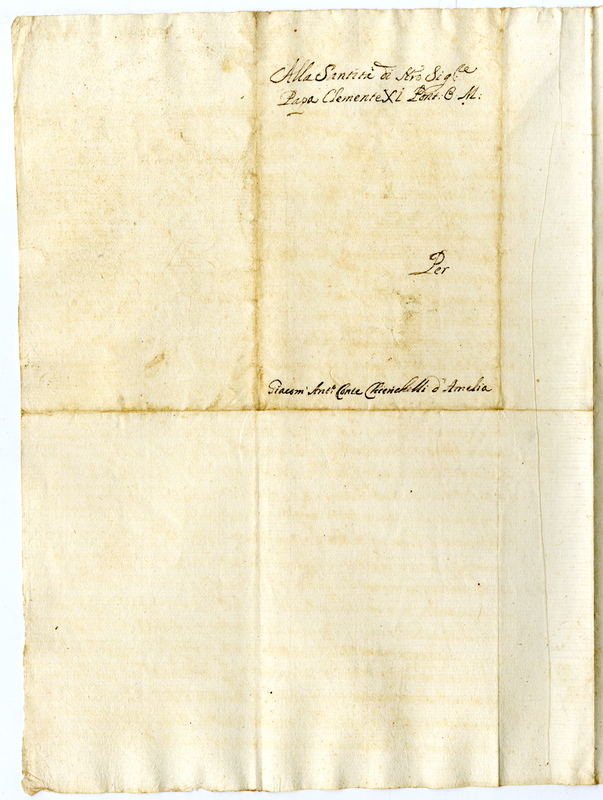 Alla Santità di Nrō Sig.re
Papa Clemente XI Pont: O M:
Per
Giacom' Ant.o Conte d'Amelia